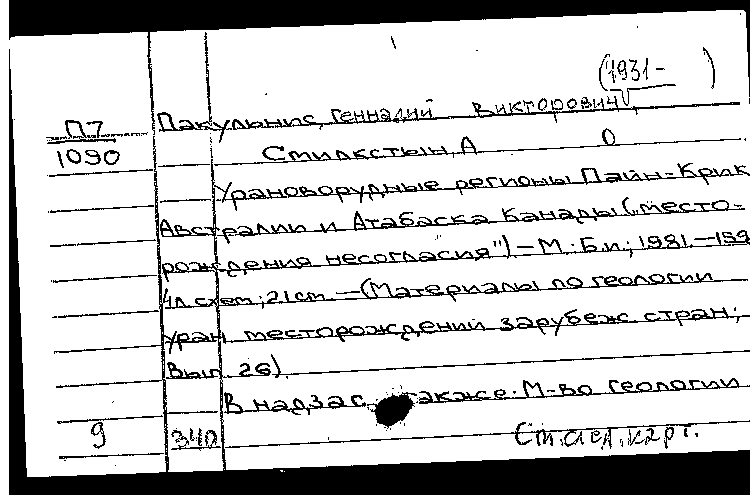 (1931- )
П7 Пакульнис, Геннадий Викторович,
1090 Смилкстын, А О
Урановорудные регионы Пайн-Крик
Австралии и Атабаска Канады („место-
рождения несогласия") – М.: Б.и.; 1981. – 159
4л схем; 21 см. – (Материалы по геологии
уран месторождений зарубеж стран;
Вып. 26).
В надзаг также: М-во геологии
9 340 См. след. карт.